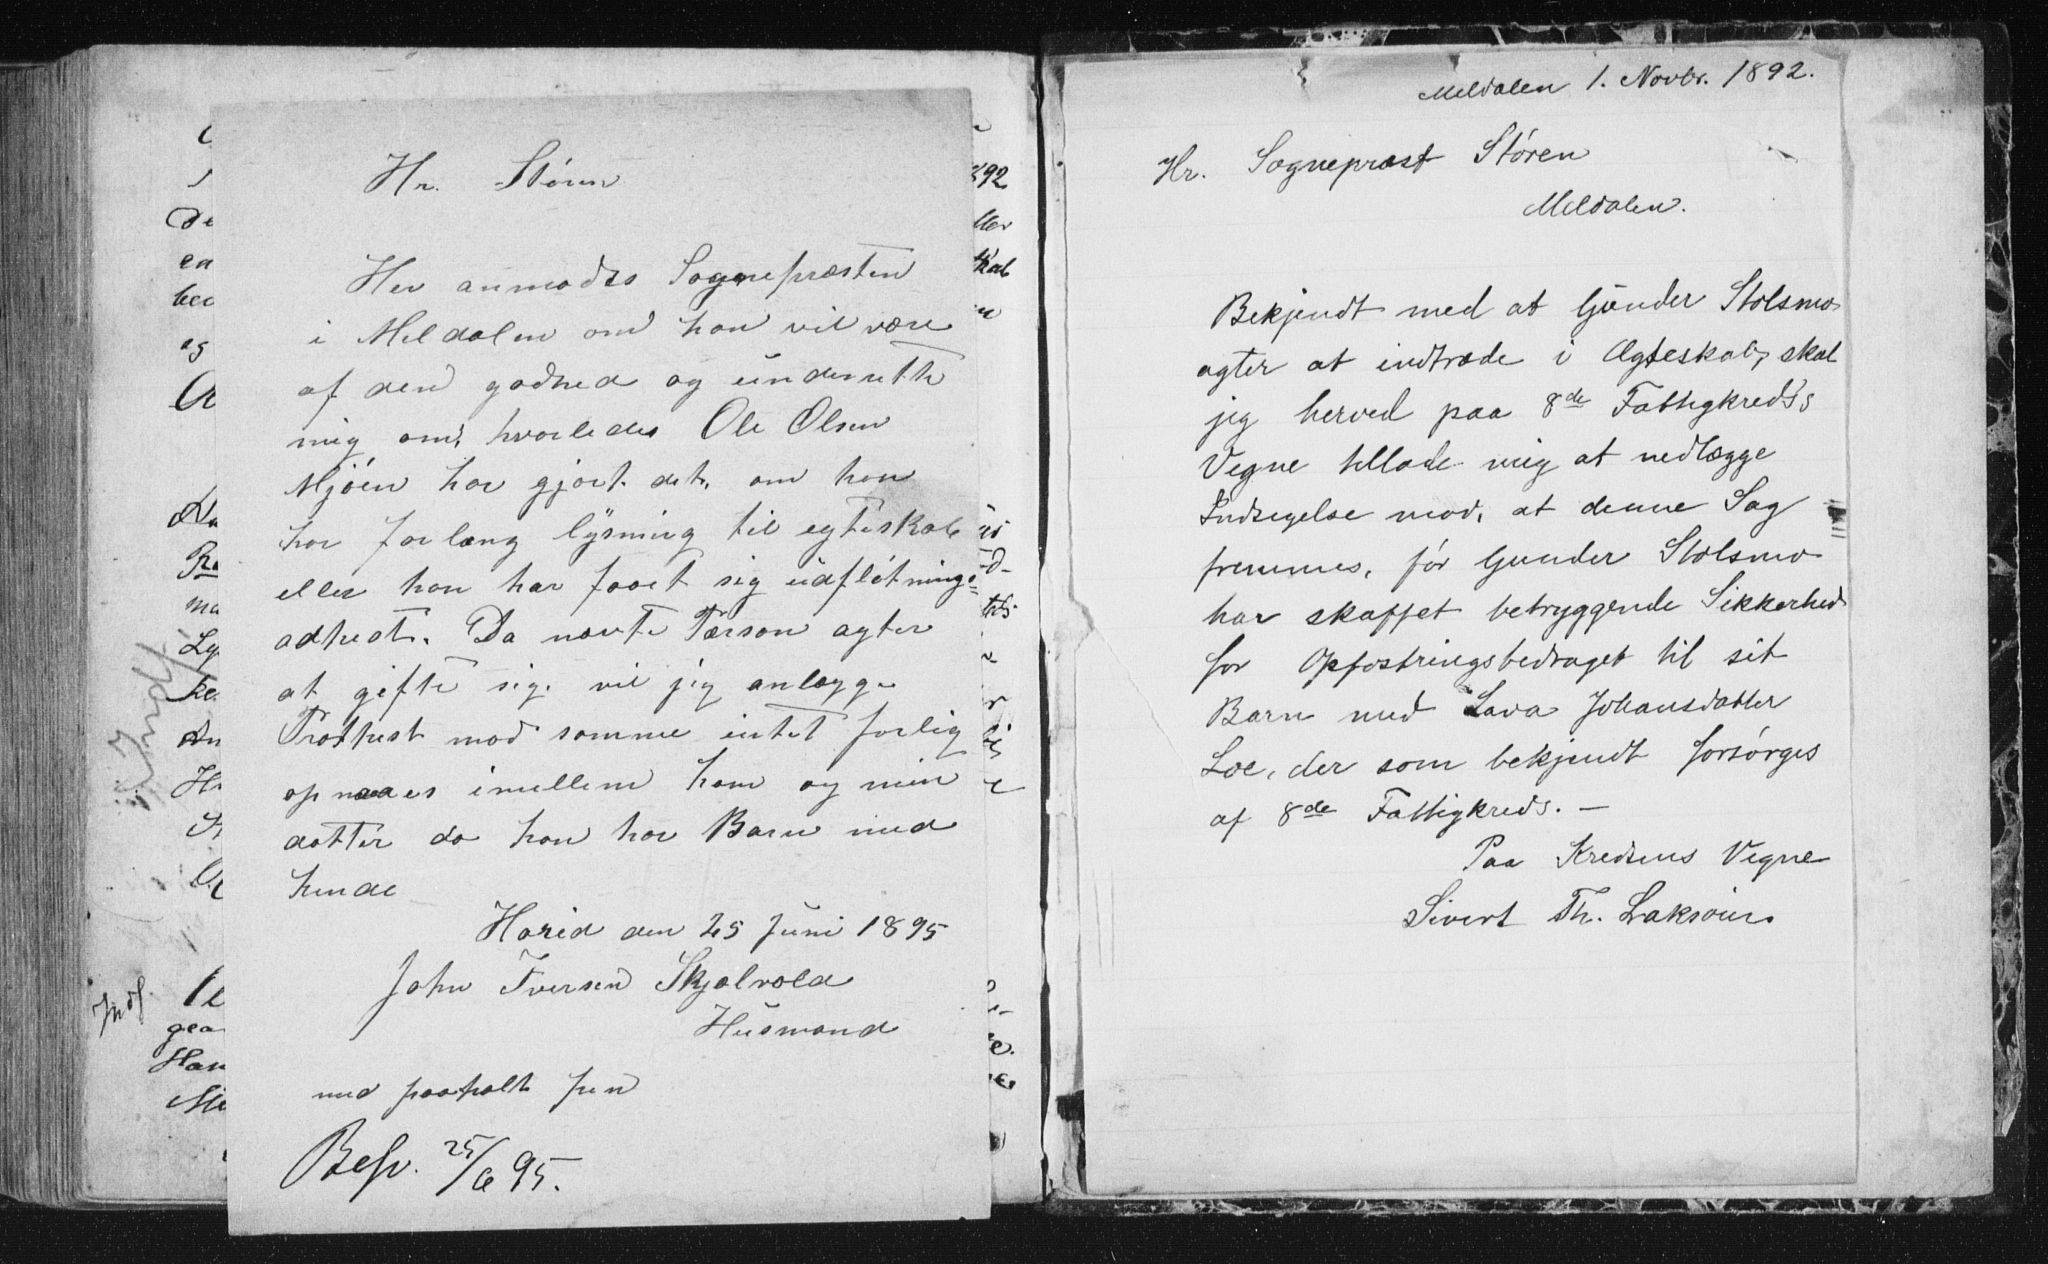 Hr. Støren
Her anmodes Sognepræsten
i Meldalen om han vil være
af den godhed og underrette
mig om, hvorledes Ole Olsen
Mjøen har gjort det, om han
har forlang lysning til egteskab
eller han har faaet sig udflötnings=
adhest. Da nævte Pærson agter
at gifte sig. vil jig anlægge
Prothest mod somme intet forlig
opnaaes imellem ham og min
datter da han har Barn med
hende
Horid den 25 Juni 1895
John Iversen Skjølvold
Husmand
med paaholt pen
Besv. 25/6 95.
Indf.
Indf.
Meldalen 1. Novbr. 1892.
Hr. Sognepræst Støren
Meldalen.
Bekjendt med at Gunder Stolsmo
agter at indtræde i Ægteskab, skal
jeg herved paa 8de Fattigkreds's
Vegne tillade mig at nedlægge
Indsigelse mod, at denne Sag
fremmes, før Gunder Stolsmo
har skaffet betryggende Sikkerhed
for Opfostringsbedraget til sit
Barn med Lava Johansdatter
Loe, der som bekjendt forsørges
af 8de Fattigkreds. —
Paa Kredsens Vegne
Sivert Th. Laksøien